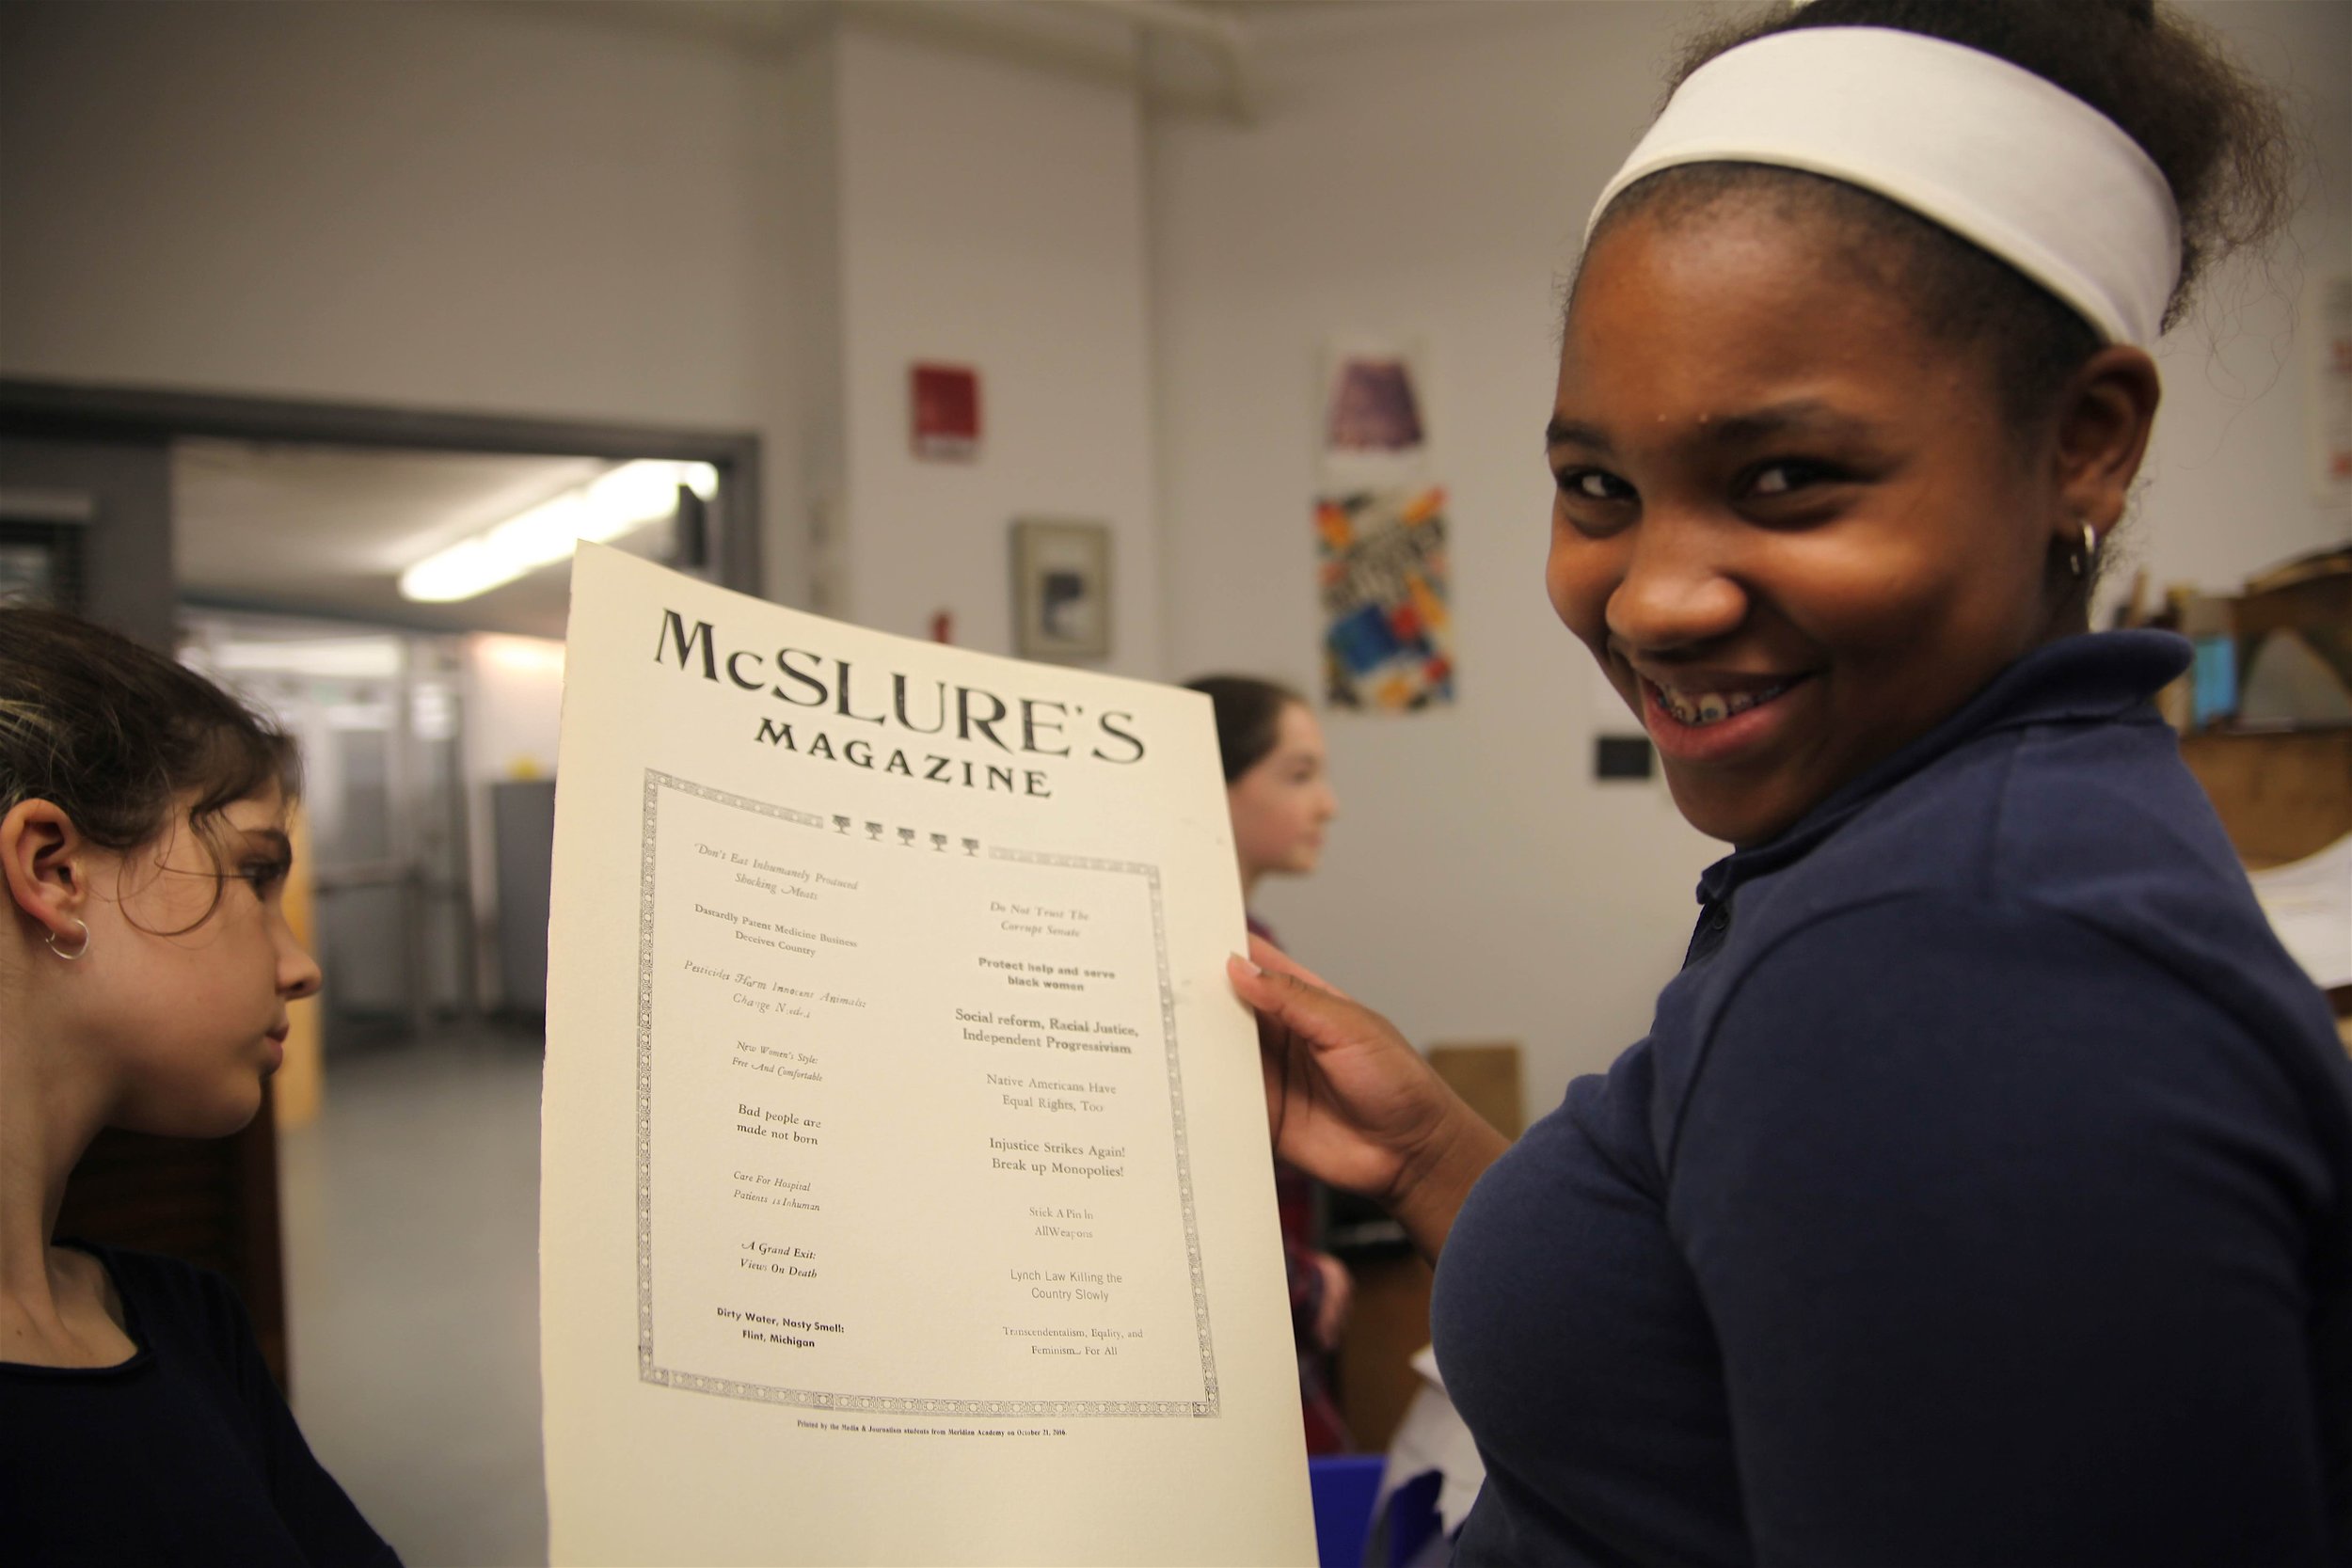 McSLURE'S
MAGAZINE
"Don't Eat Inhumanely Produced
Shocking Meats
Dastardly Patent Medicine Business
Deceives Country
Pesticides Harm Innocent Animals:
Change Needed
New Women's Style:
Free And Comfortable
Bad people are
made not born
Care For Hospital
Patients is Inhuman
A Grand Exit:
Views On Death
Dirty Water, Nasty Smell:
Flint, Michigan
Do Not Trust The
Corrupt Senate
Protect help and serve
black women
Social reform, Racial Justice,
Independent Progressivism
Native Americans Have
Equal Rights, Too
Injustice Strikes Again!
Break up Monopolies!
Stick A Pin In
AllWeapons
Lynch Law Killing the
Country Slowly
Transcendentalism, Eqality, and
Feminism.. For All
Printed by the Media & Journalism students from Meridian Academy on October 21, 2016.